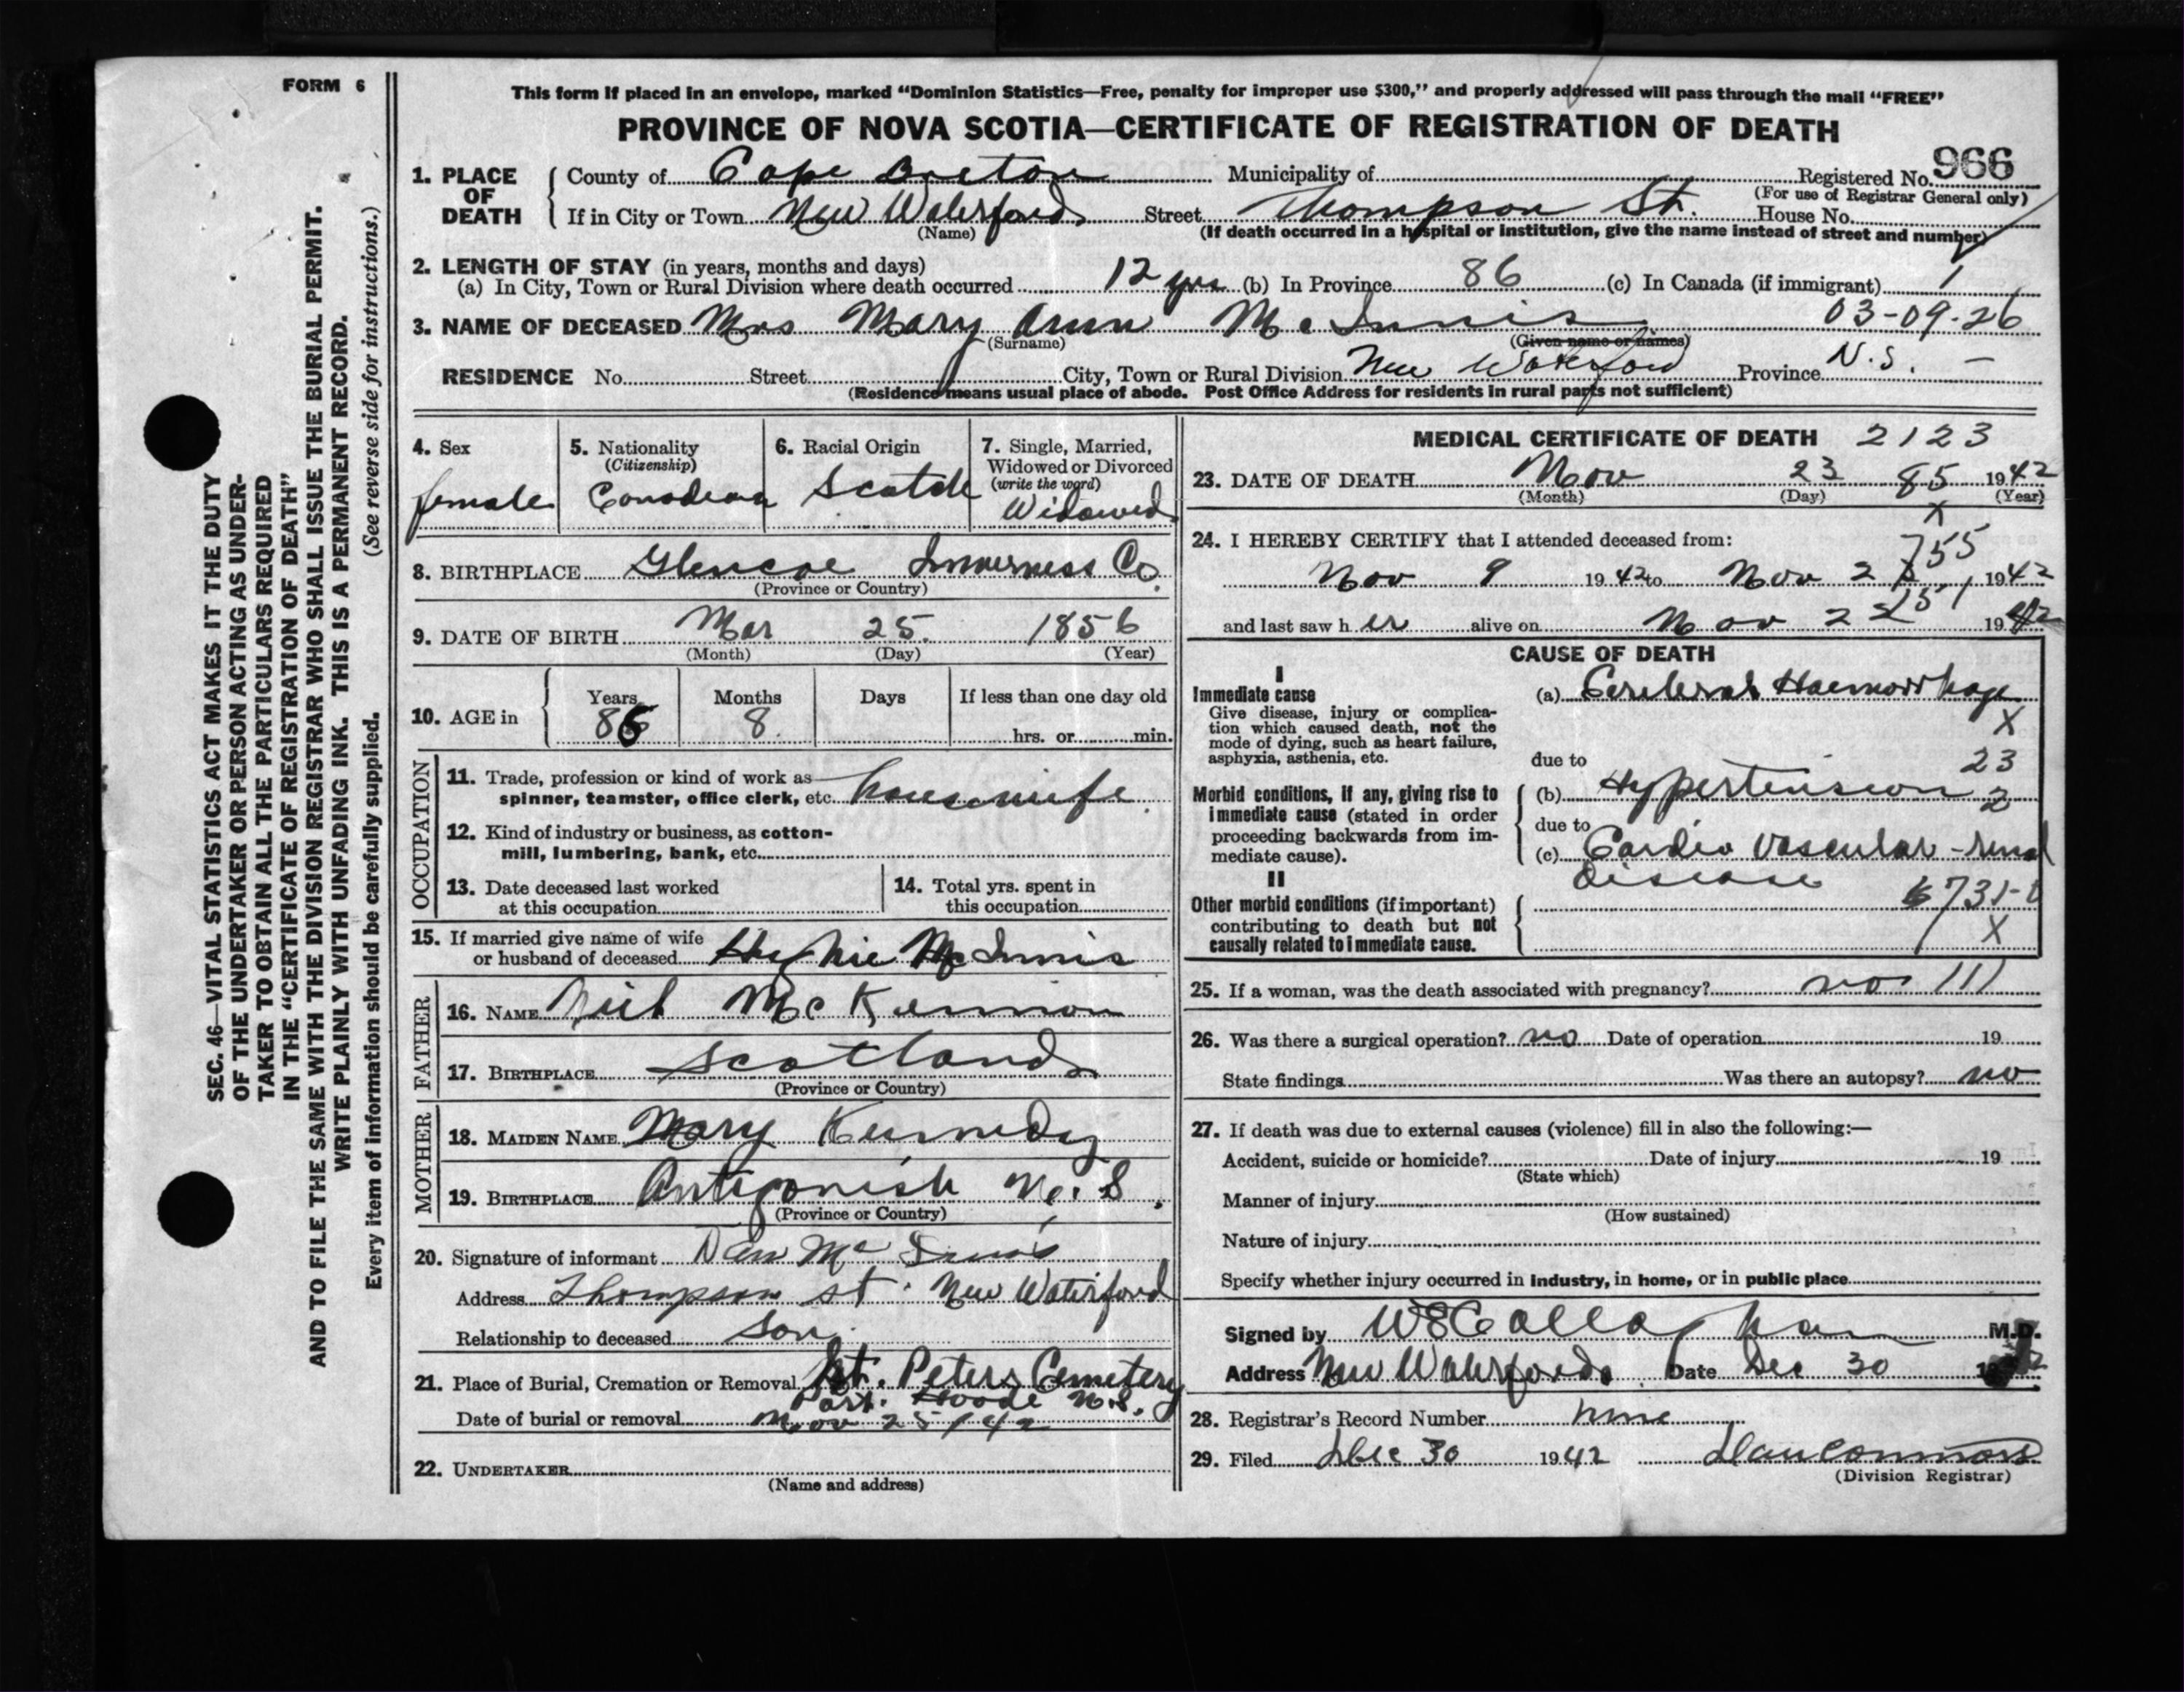 FORM 6
This form if placed in an envelope, marked “Dominion Statistics—Free, penalty for improper use $300,” and properly addressed will pass through the mail “FREE”
PROVINCE OF NOVA SCOTIA—CERTIFICATE OF REGISTRATION OF DEATH
966
1. PLACE OF DEATH County of Cape Breton Municipality of Registered No.
(For use of Registrar General only)
If in City or Town New Waterford Street Thompson St. House No.
(Name) (If death occurred in a hospital or institution, give the name instead of street and number)
2. LENGTH OF STAY (in years, months and days)
(a) In City, Town or Rural Division where death occurred 12 yrs (b) In Province 86 (c) In Canada (if immigrant) 1
3. NAME OF DECEASED Mrs Mary Ann McInnis 03-09-26
(Surname) (Given name or names)
RESIDENCE No. Street City, Town or Rural Division New Waterford Province N.S. —
(Residence means usual place of abode. Post Office Address for residents in rural parts not sufficient)
4. Sex
female
5. Nationality
(Citizenship)
Canadian
6. Racial Origin
Scotch
7. Single, Married,
Widowed or Divorced
(write the word)
Widowed
8. BIRTHPLACE Glencoe Inverness Co.
(Province or Country)
9. DATE OF BIRTH Mar 25. 1856
(Month) (Day) (Year)
10. AGE in Years Months Days If less than one day old
86 8. hrs. or min.
OCCUPATION
11. Trade, profession or kind of work as
spinner, teamster, office clerk, etc. housewife.
12. Kind of industry or business, as cotton-
mill, lumbering, bank, etc.
13. Date deceased last worked
at this occupation
14. Total yrs. spent in
this occupation
15. If married give name of wife
or husband of deceased Hughie McInnis
FATHER
16. NAME Neil McKinnon
17. BIRTHPLACE Scotland
(Province or Country)
MOTHER
18. MAIDEN NAME Mary Kennedy
19. BIRTHPLACE Antigonish N.S.
(Province or Country)
20. Signature of informant Dan McInnis
Address Thompson st. New Waterford
Relationship to deceased son.
21. Place of Burial, Cremation or Removal St. Peters Cemetery
Port. Hoode N.S.
Date of burial or removal Nov 25/42
22. UNDERTAKER
(Name and address)
MEDICAL CERTIFICATE OF DEATH 2123
23. DATE OF DEATH Nov 23 85 1942
(Month) (Day) (Year)
X
24. I HEREBY CERTIFY that I attended deceased from:
755
Nov 9 1942 to Nov 2 1942
151
and last saw h er alive on Nov 22 1942
CAUSE OF DEATH
I
Immediate cause
Give disease, injury or complica-
tion which caused death, not the
mode of dying, such as heart failure,
asphyxia, asthenia, etc.
(a) Cerebral Haemorrhage
X
due to 23
Morbid conditions, if any, giving rise to
immediate cause (stated in order
proceeding backwards from im-
mediate cause).
(b) Hypertension 2
due to
(c) Cardio vascular-renal
disease
II
Other morbid conditions (if important)
contributing to death but not
causally related to immediate cause.
X
25. If a woman, was the death associated with pregnancy? no 111
26. Was there a surgical operation? no Date of operation 19
State findings Was there an autopsy? no
27. If death was due to external causes (violence) fill in also the following:—
Accident, suicide or homicide? Date of injury 19
(State which)
Manner of injury
(How sustained)
Nature of injury
Specify whether injury occurred in industry, in home, or in public place
Signed by W E Callaghan M.D.
Address New Waterford. Date Dec 30
28. Registrar's Record Number nine
29. Filed Dec 30 1942 Dan Connors
(Division Registrar)
SEC. 46—VITAL STATISTICS ACT MAKES IT THE DUTY
OF THE UNDERTAKER OR PERSON ACTING AS UNDER-
TAKER TO OBTAIN ALL THE PARTICULARS REQUIRED
IN THE “CERTIFICATE OF REGISTRATION OF DEATH”
AND TO FILE THE SAME WITH THE DIVISION REGISTRAR WHO SHALL ISSUE THE BURIAL PERMIT.
WRITE PLAINLY WITH UNFADING INK. THIS IS A PERMANENT RECORD.
Every item of information should be carefully supplied. (See reverse side for instructions.)